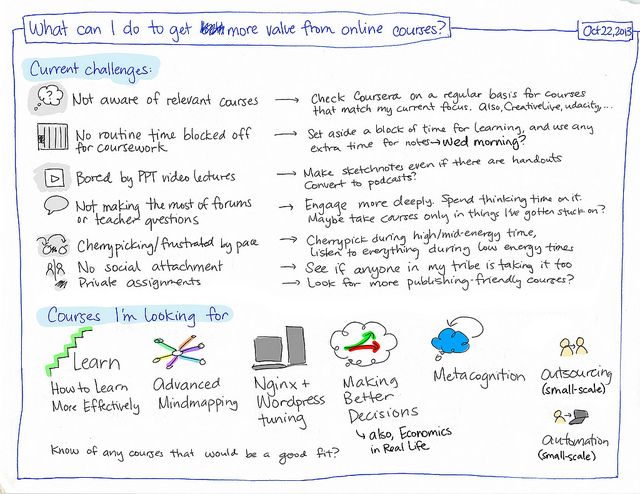 What can I do to get more value from online courses?
Oct 22, 2013
Current challenges:
Not aware of relevant courses → Check Coursera on a regular basis for courses
that match my current focus. Also, CreativeLive, udacity,...
No routine time blocked off
for coursework → Set aside a block of time for learning, and use any
extra time for notes → Wed morning?
Bored by PPT video lectures → Make sketchnotes even if there are handouts
Convert to podcasts?
Not making the most of forums
or teacher questions → Engage more deeply. Spend thinking time on it.
Maybe take courses only in things I've gotten stuck on?
Cherrypicking/frustrated by pace → Cherrypick during high/mid-energy time,
listen to everything during low energy times
No social attachment → See if anyone in my tribe is taking it too
Private assignments → Look for more publishing-friendly courses?
Courses I'm looking for
Learn
How to Learn
More Effectively
Advanced
Mindmapping
Nginx +
Wordpress
tuning
Making
Better
Decisions
↳ also, Economics
in Real Life
Metacognition
Outsourcing
(small-scale)
automation
(small-scale)
Know of any courses that would be a good fit?